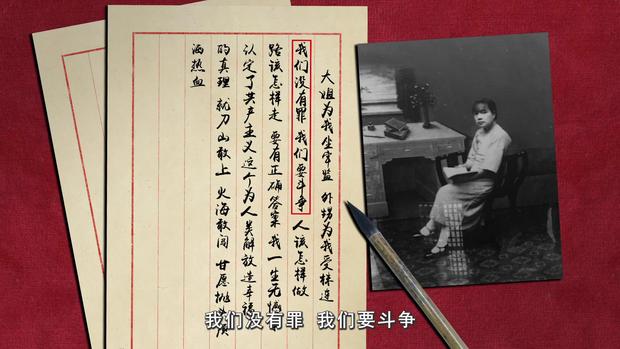 大姐为我坐牢监 外甥为我受株连
我们没有罪 我们要斗争 人该怎样做
路该怎样走 要有正确答案 我一生无悔
认定了共产主义这个为人类解放造幸福
的真理 就刀山敢上 火海敢闯 甘愿抛头颅
洒热血
我们没有罪 我们要斗争